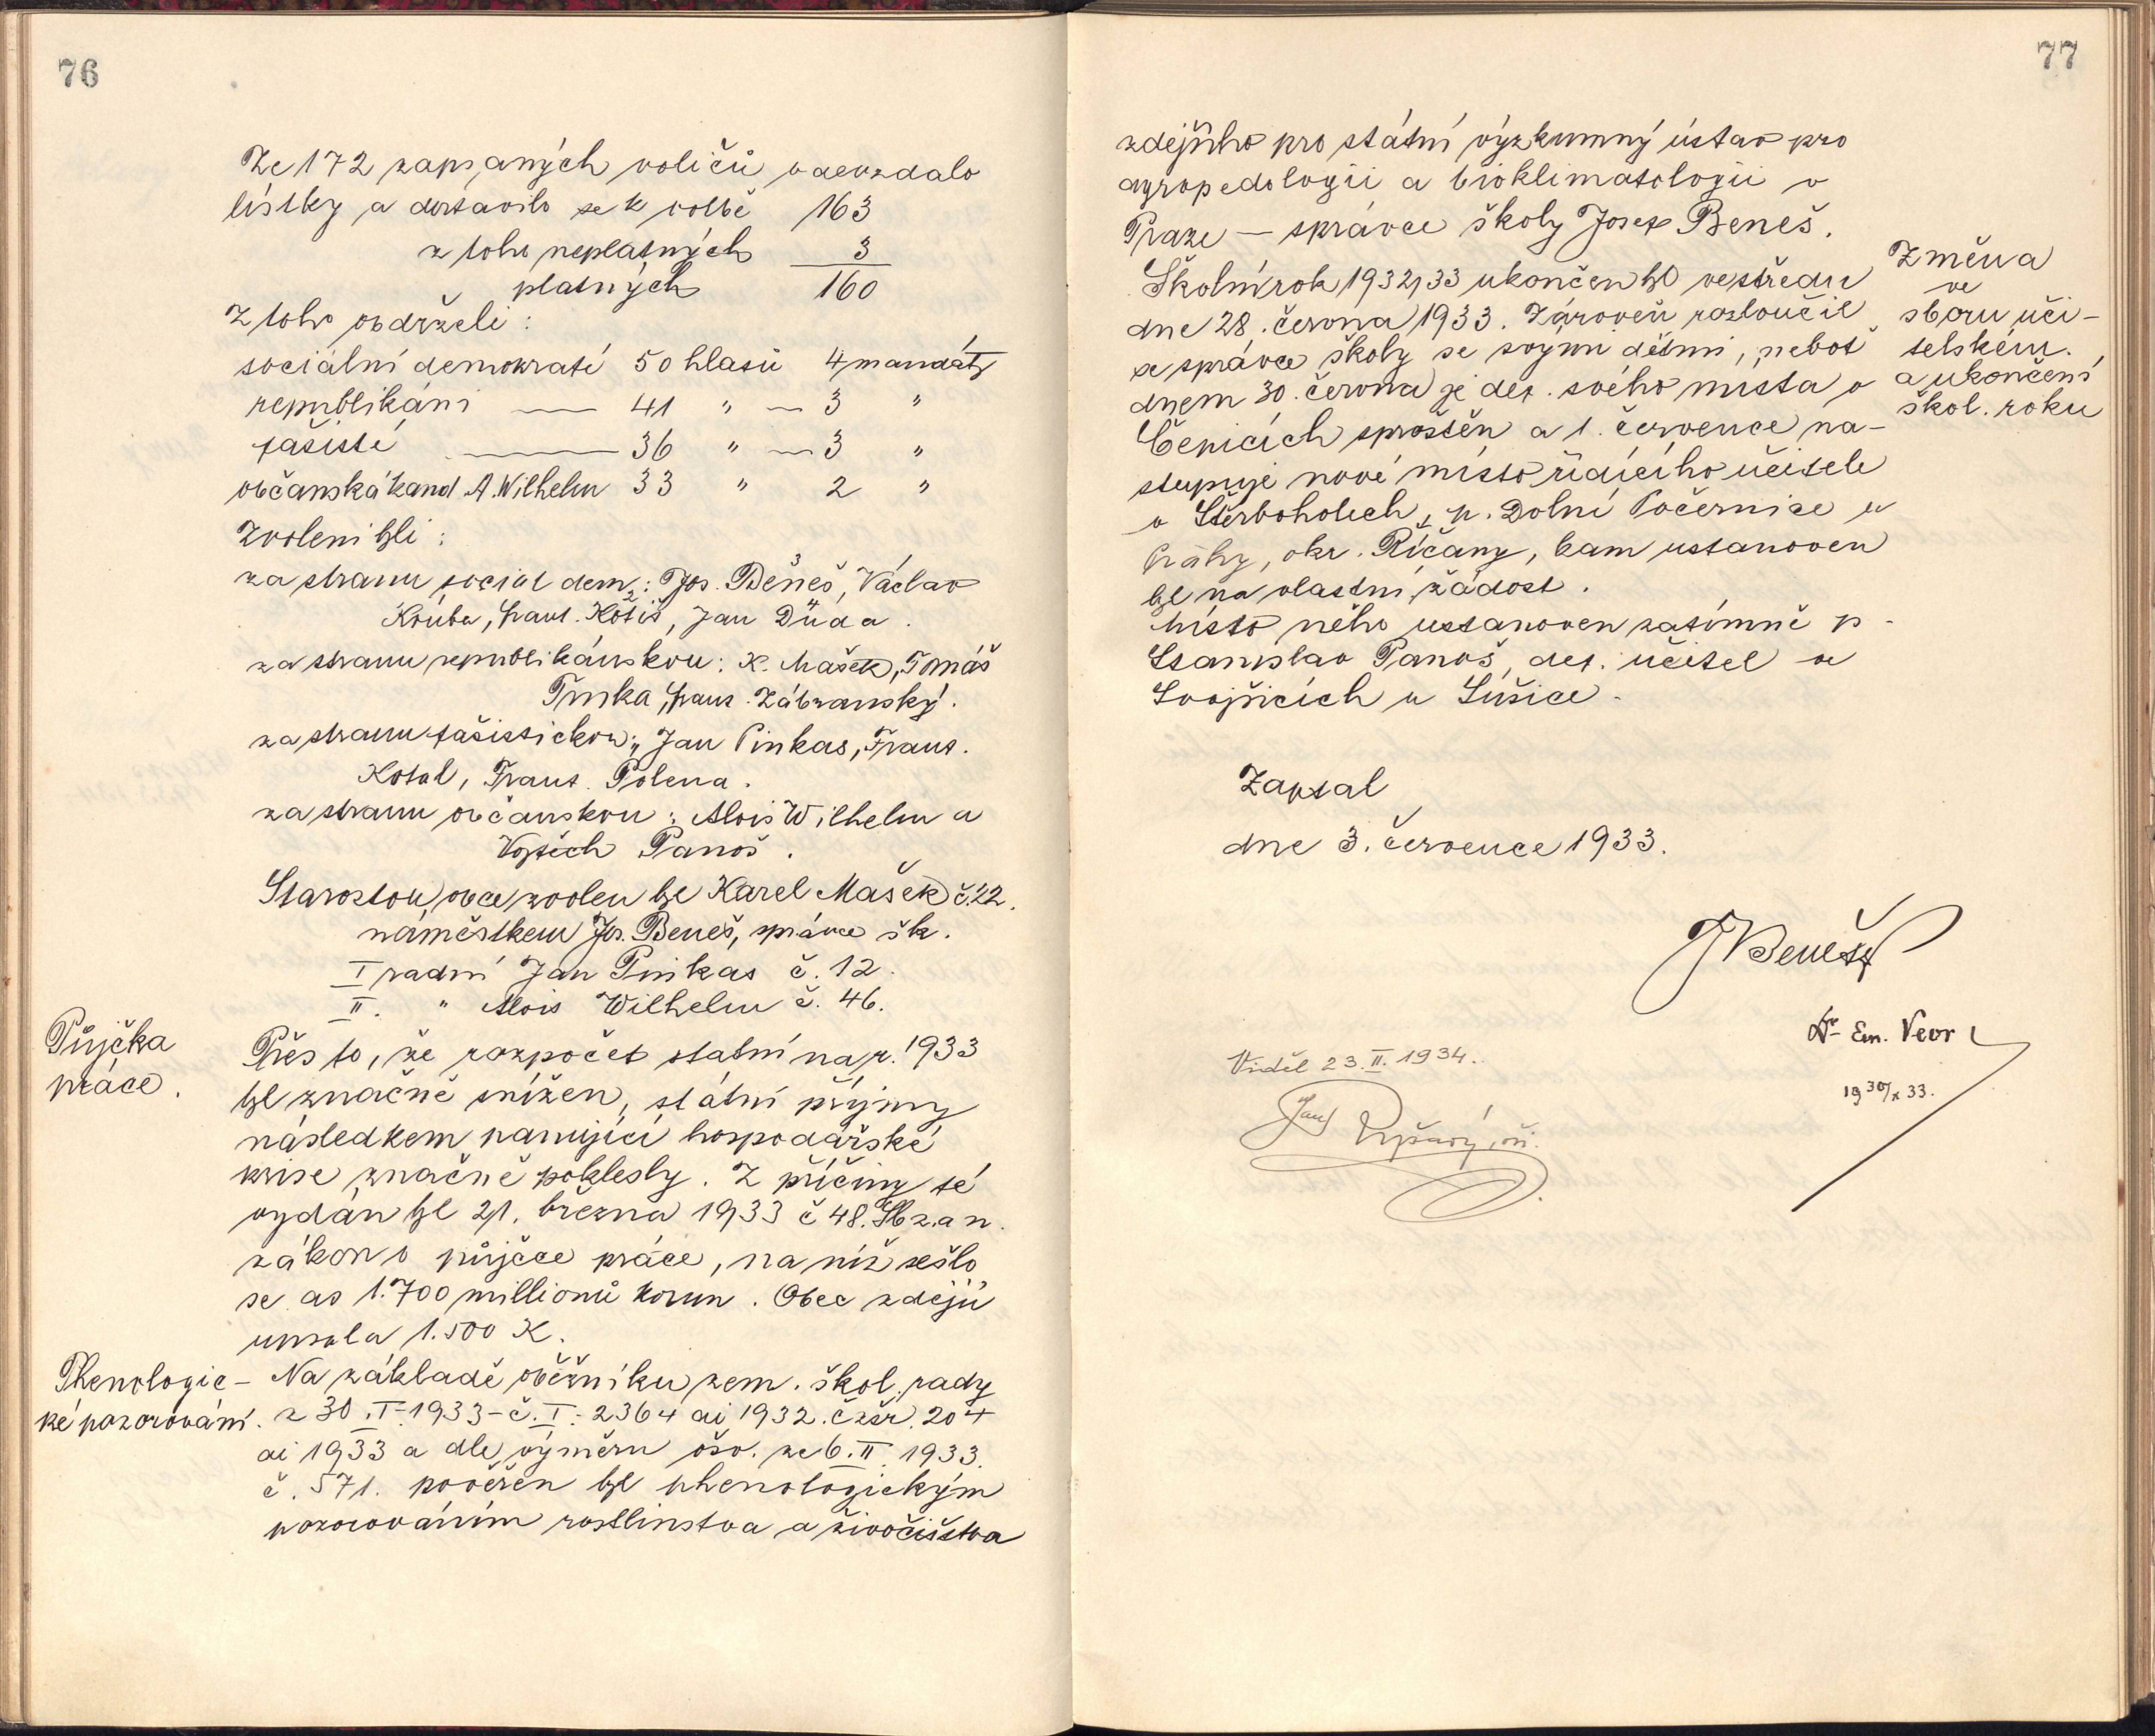 76
Ze 172 zapsaných voličů odevzdalo
lístky a dostavilo se k volbě 163
z toho neplatných 3
platných 160
Z toho obdrželi:
sociální demokraté 50 hlasů 4 mandáty
republikáni — 41 " — 3 "
fašisté — 36 " — 3 "
občanská kand A. Wilhelm 33 " 2 "
Zvoleni byli:
za stranu social dem.: Jos. Beneš, Václav
Kouba, Frant. Kotiš, Jan Důda.
za stranu republikánskou: K. Mašek, Tomáš
Trnka, Frant. Zábranský.
za stranu fašistickou: Jan Pinkas, Frant.
Kotal, Frant. Polena.
za stranu občanskou: Alois Wilhelm a
Vojtěch Panoš.
Starostou obce zvolen byl Karel Mašek č. 22.
náměstkem Jos. Beneš, správce šk.
I radní Jan Pinkas č. 12.
II. " Alois Wilhelm č. 46.
Půjčka
práce.
Přes to, že rozpočet státní na r. 1933
byl značně snížen, státní příjmy
následkem panující hospodářské
krise značně poklesly. Z příčiny té
vydán byl 21. března 1933 č 48. Sb z. a n.
zákon o půjčce práce, na níž sešlo
se as 1.700 millionů korun. Obec zdejší
upsala 1.500 K.
Phenologic-
ké pozorování.
Na základě oběžníku zem. škol. rady
z 30. I-1933 - č. I.- 2364 ai 1932. čzšr. 204
ai 1933 a dle výměru ošv. ze 6. II. 1933.
č. 571. pověřen byl phenologickým
pozorováním rostlinstva a živočišstva
77
zdejšího pro státní výzkumný ústav pro
agropedologii a bioklimatologii v
Praze — správce školy Josef Beneš.
Změna
ve
sboru uči-
telském.
a ukončení
škol. roku
Školní rok 1932/33 ukončen byl ve středu
dne 28. června 1933. Zároveň rozloučil
se správce školy se svými dětmi, neboť
dnem 30. června je def. svého místa v
Čepicích sproštěn a 1. července na-
stupuje nové místo řídícího učitele
v Štěrboholech, p. Dolní Počernice u
Prahy, okr. Říčany, kam ustanoven
byl na vlastní žádost.
Místo něho ustanoven zatímně p.
Stanislav Panoš, def. učitel ve
Svojšicích u Sušice.
Zapsal
dne 3. července 1933.
JBeneš
Dr Em. Veor
19 30/X 33.
Viděl 23. II. 1934.
Jan